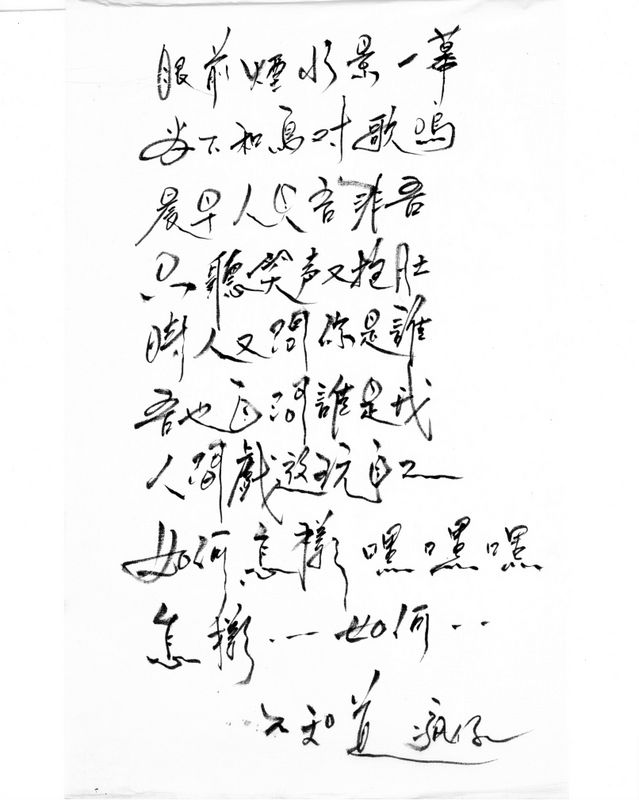 眼前煙水景一幕
下和鳥对歌鳴
晨早人 吾非吾
只聽笑声又抱肚
人又問你是誰
吾也自問誰是我
人間戲遊玩自己
如何怎樣嘿嘿嘿
怎樣..一如何..
不知道 瘋仔